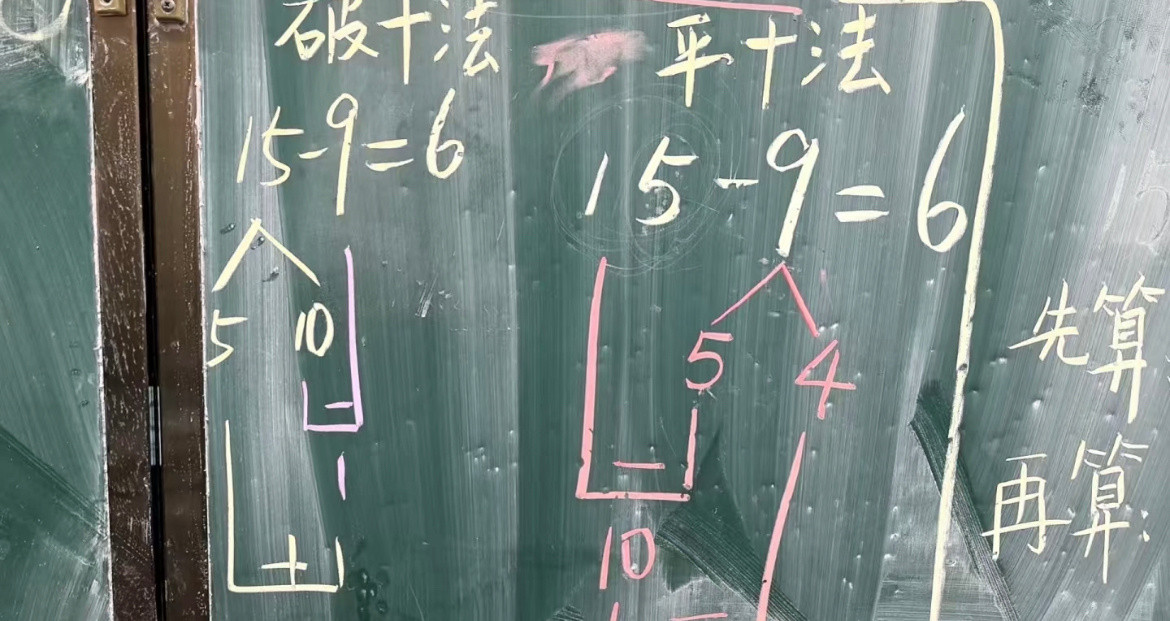 破十法
15-9=6
5 10
-
1
+
平十法
15-9=6
5 4
-
10
-
先算
再算: